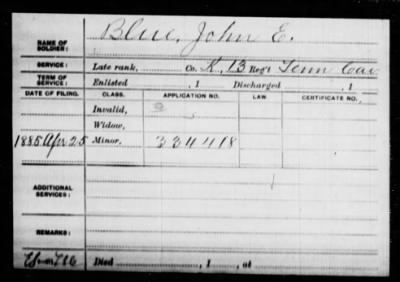 NAME OF SOLDIER: Blue, John E.
SERVICE: Late rank, Co. K, 13 Reg't Tenn Cav
TERM OF SERVICE: Enlisted , 1 Discharged , 1
DATE OF FILING. CLASS. APPLICATION NO. LAW. CERTIFICATE NO.
Invalid,
Widow,
1885 Apr 25 Minor, 334418
ADDITIONAL SERVICES:
REMARKS:
Died , 1 , at